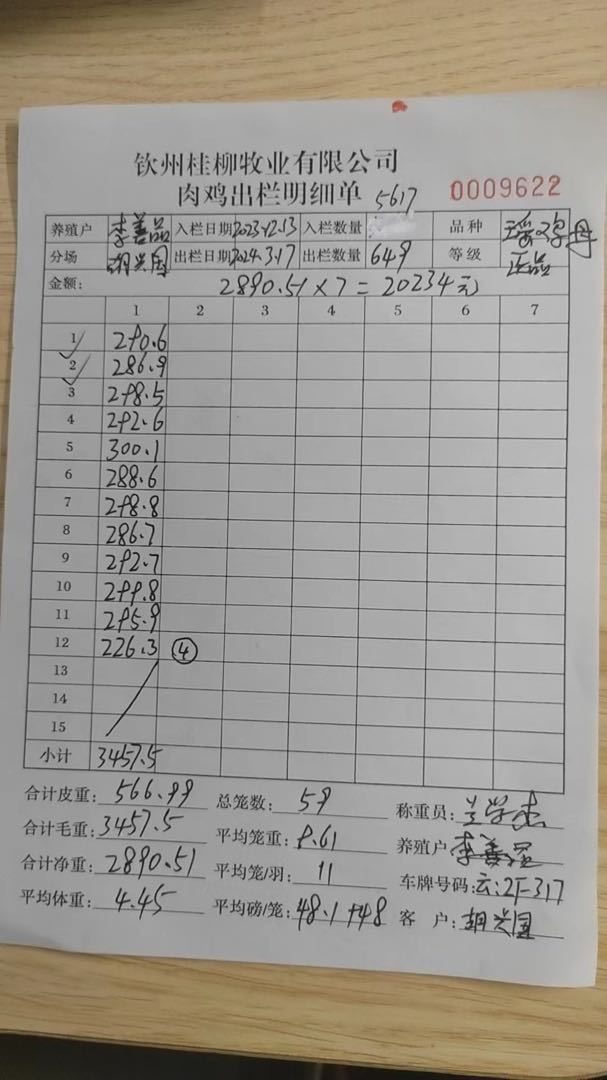 钦州桂柳牧业有限公司
肉鸡出栏明细单 5617 0009622
养殖户 李善品 入栏日期 2023.12.13 入栏数量 品种
分场 胡兴国 出栏日期 2024.3.17 出栏数量 649 等级 正品
金额: 2890.51×7=20234元
1 2 3 4 5 6 7
1 290.6
2 286.9
3 298.5
4 292.6
5 300.1
6 288.6
7 298.8
8 286.7
9 292.7
10 299.8
11 295.9
12 226.3 ④
13
14
15
小计 3457.5
合计皮重: 566.99 总笼数: 59 称重员:
合计毛重: 3457.5 平均笼重: 9.61 养殖户: 李善品
合计净重: 2890.51 平均笼/羽: 11 车牌号码: 云:2F317
平均体重: 4.45 平均磅/笼: 48.1+48 客 户: 胡兴国